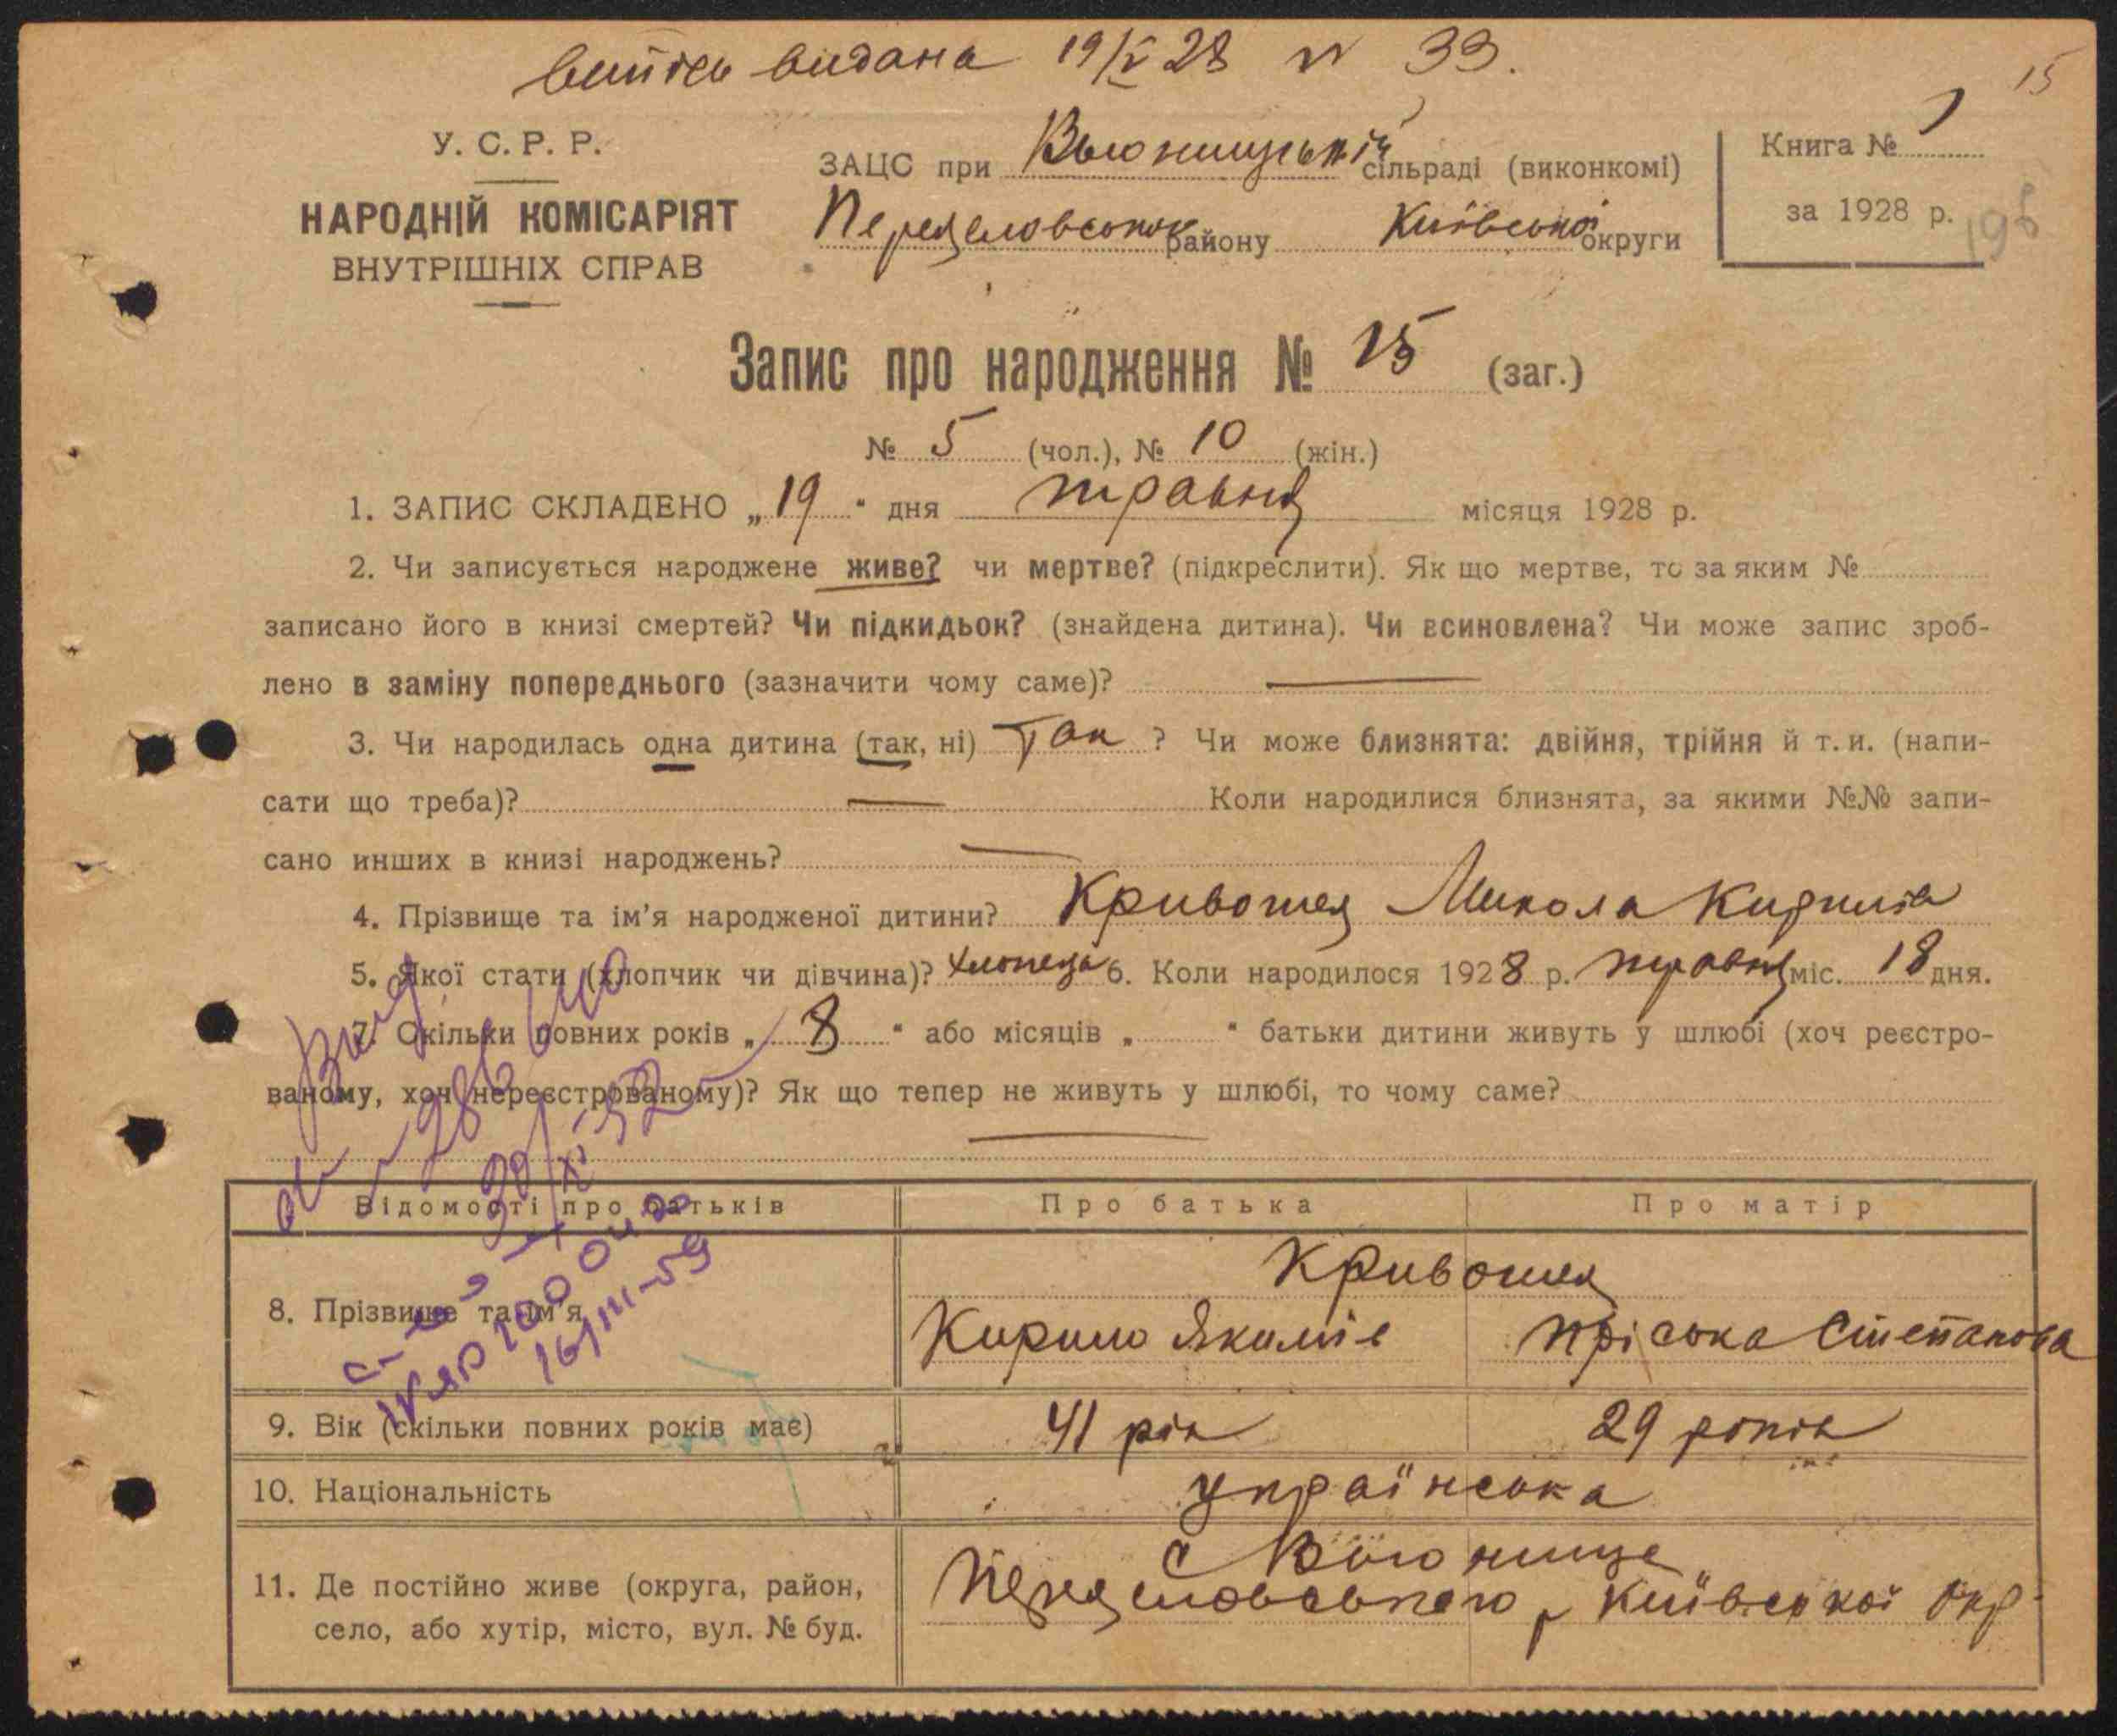 випись видана 19/V 28 N 33.
15
У. С. Р. Р.
НАРОДНІЙ КОМІСАРІЯТ
ВНУТРІШНІХ СПРАВ
ЗАЦС при Вьюнищській сільраді (виконкомі)
Переяславського району Київської округи
Книга № 1
за 1928 р.
Запис про народження № 15 (заг.)
№ 5 (чол.), № 10 (жін.)
1. ЗАПИС СКЛАДЕНО „19“ дня травня місяця 1928 р.
2. Чи записується народжене живе? чи мертве? (підкреслити). Як що мертве, то за яким №
записано його в книзі смертей? Чи підкидьок? (знайдена дитина). Чи всиновлена? Чи може запис зроб-
лено в заміну попереднього (зазначити чому саме)? —
3. Чи народилась одна дитина (так, ні) Так ? Чи може близнята: двійня, трійня й т. и. (напи-
сати що треба)? — Коли народилися близнята, за якими №№ запи-
сано инших в книзі народжень? —
4. Прізвище та ім'я народженої дитини? Кривошея Микола Кирилів
5. Якої стати (хлопчик чи дівчина)? 6. Коли народилося 1928 р. травня міс. 18 дня.
7. Скільки повних років „ 8 “ або місяців „ “ батьки дитини живуть у шлюбі (хоч реєстро-
ваному, хоч нереєстрованому)? Як що тепер не живуть у шлюбі, то чому саме?
—
Відомості про батьків Про батька Про матір
8. Прізвище та ім'я Кривошея
Кирило Якимів Пріська Степанова
16/III-59
9. Вік (скільки повних років має) 41 рік 29 років
10. Національність українська
11. Де постійно живе (округа, район,
село, або хутір, місто, вул. № буд.
с Вьюнище
Переяславського р Київської окр.